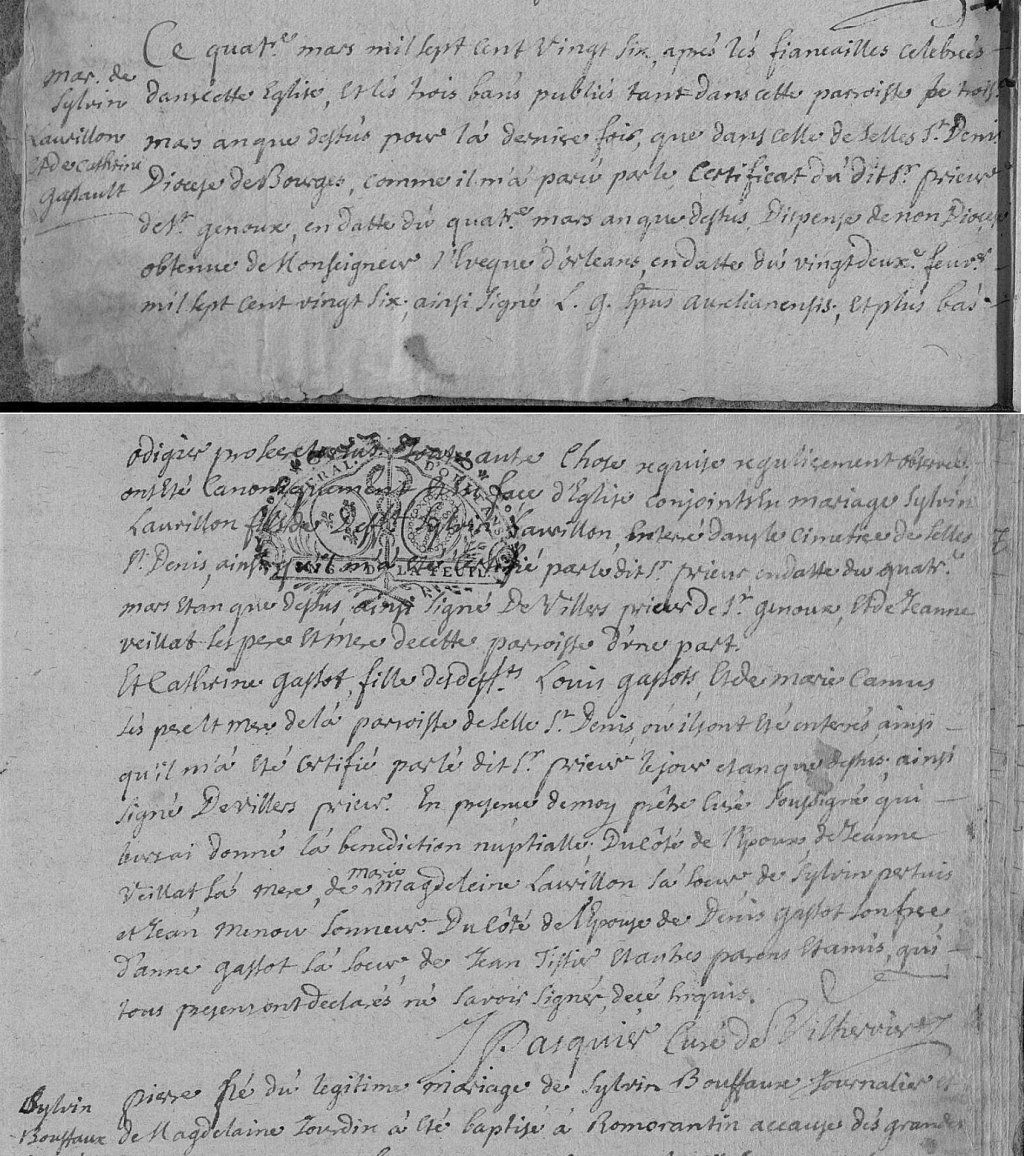 Ce quatr.e mars mil sept cent vingt six, aprés lés fiancailles celebrées
mar. de
Sylvin
Laurillon
Et de Cathrine
Gassault
dans cette Eglise, Et lés trois bans publiés tant dans cette parroisse le trois.e
mars an que dessus pour la dernire fois, que dans celle de Selles St. Denis
Diocese de Bourges, comme il m'a paru par le Certificat du dit Sr. prieur
de St. genoux, en datte du quatr.e mars an que dessus, Dispense de non Diocese
obtenue de Monseigneur l'Eveque d'orleans, en datte du vingt deux.e feur.er
mil sept cent vingt six, ainsi signé L. g. Epus aurelianensis, Et plus bas
odigier pro secretarius. toute autre Chose requise regulierement observée
ont Eté Canoniquement Et en face d'Eglise conjoints En mariage Sylvin
Laurillon fils de deff.t Sylvin Laurillon, Enterré dans le Cimetiere de Selles
St. Denis, ainsi qu'il m'a Eté Certifié par le dit Sr. prieur en datte du quatr.e
mars Et an que dessus ainsi signé De Villers prieur de St. genoux, Et de Jeanne
veillat ses pere Et mere de cette parroisse d'une part.
Et Cathrine gassot, fille des deff.ts Louis gassots, Et de marie Camus
sés pere Et mere de la parroisse de Selle St. Denis, où ils ont Eté enterrés, ainsi
qu'il m'a Eté Certifié par lé dit Sr. prieur le jour et an que dessus, ainsi
signé De villers prieur. En presence de moy prêtre Curé soussigné qui
leur ai donné la benediction nuptialle. Du côté de l'Epoux de Jeanne
Veillat, sa mere, de marie magdeleine Laurillon sa soeur, de Sylvin pertuis
et Jean menou sonneur. Du Côté de l'Epouse de Denis gassot son frere
d'anne gassot sa soeur, de Jean Tissir Et autres parens Et amis, qui
tous presens ont declarés né savoir signér, de cé Enquis.
J Pasquier Curé de Vilhervier
Sylvin
Bouffaux
pierre né du legitime mariage de Sylvin Bouffaux Journalier et
de Magdelaine Jourdin a Eté baptisé a Romorantin accause dés grandes